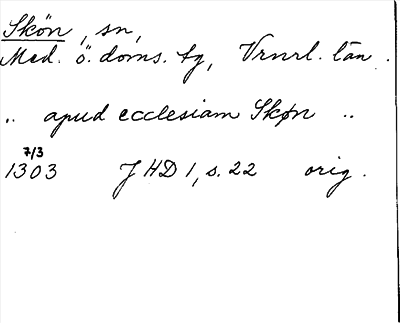 Skön, sn,
Med. ö. doms. tg, Vrnrl. län.
.. apud ecclesiam Skøn ..
7/3
1303 JHD 1, s. 22 orig.